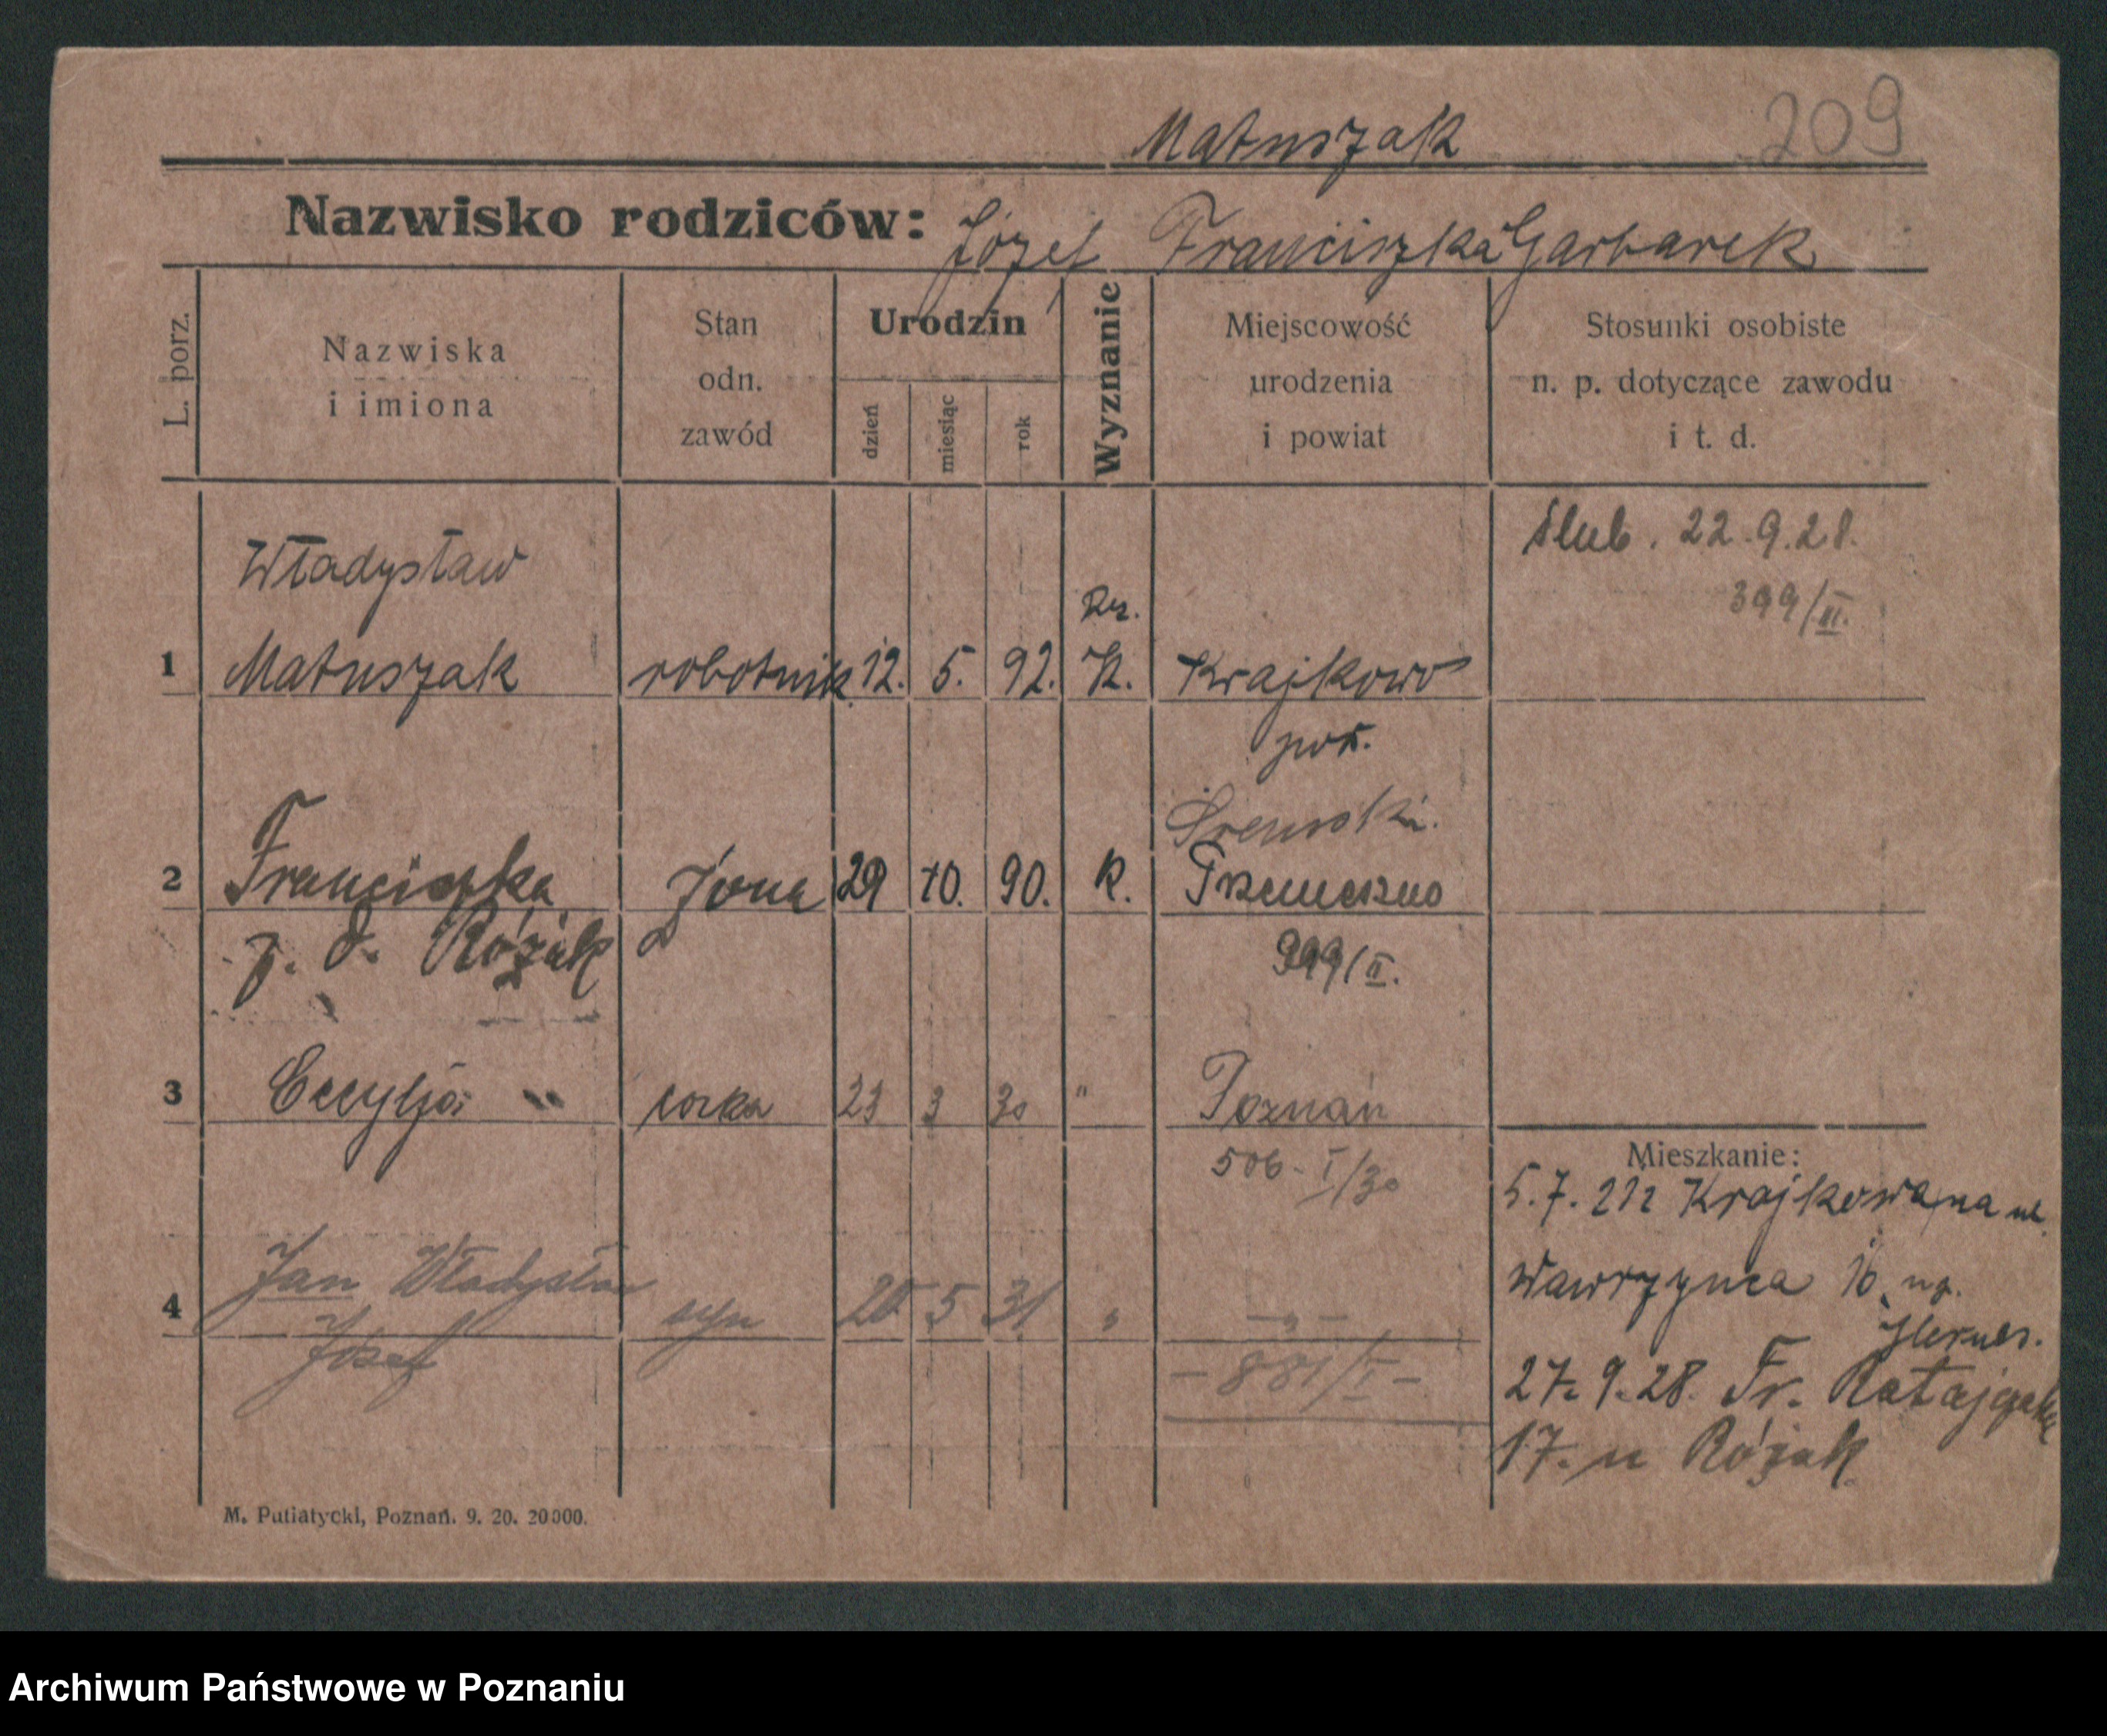 Matuszak 209
Nazwisko rodziców: Józef Franciszka Garbarek
L. porz.
Nazwiska
i imiona
Stan
odn.
zawód
Urodzin
dzień
miesiąc
rok
Wyznanie
Miejscowość
urodzenia
i powiat
Stosunki osobiste
n. p. dotyczące zawodu
i t. d.
Ślub. 22.9.28.
Władysław
Rz.
1 Matuszak robotnik 12. 5. 92. K. Krajkowo
pow.
Śremski.
2 Franciszka żona 29 10. 90. K. Trzemeszno
z. d. Różak
999/II.
3 Cecylja " córka 23 3 30 " Poznań
506-I/30
Mieszkanie:
5.7.21 z Krajkowa na ul.
Wawrzyńca 16
4 Jan Władysław syn 20 5 31 " —„—
Józef
- 881/I -
27.9.28. Fr. Ratajczaka
17. u Różak
M. Putiatycki, Poznań. 9. 20. 20000.
Archiwum Państwowe w Poznaniu